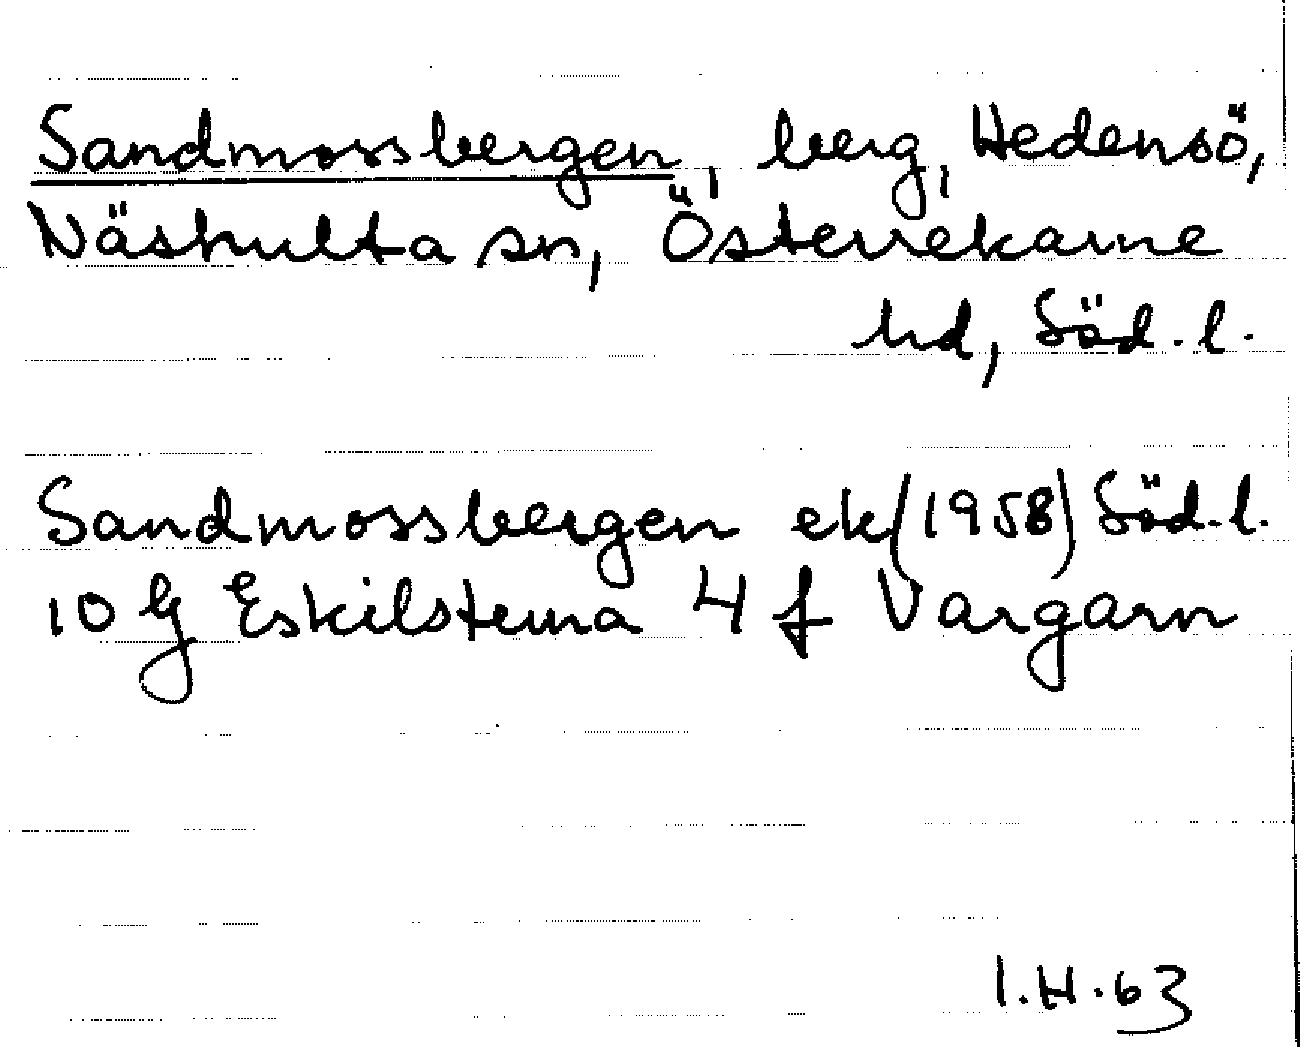 Sandmossbergen, berg, Hedensö,
Näshulta sn, Österrekarne
hd, Söd. l.
Sandmossbergen ek (1958) Söd. l.
10 G Eskilstuna 4 f Vargarn
I.H. 63